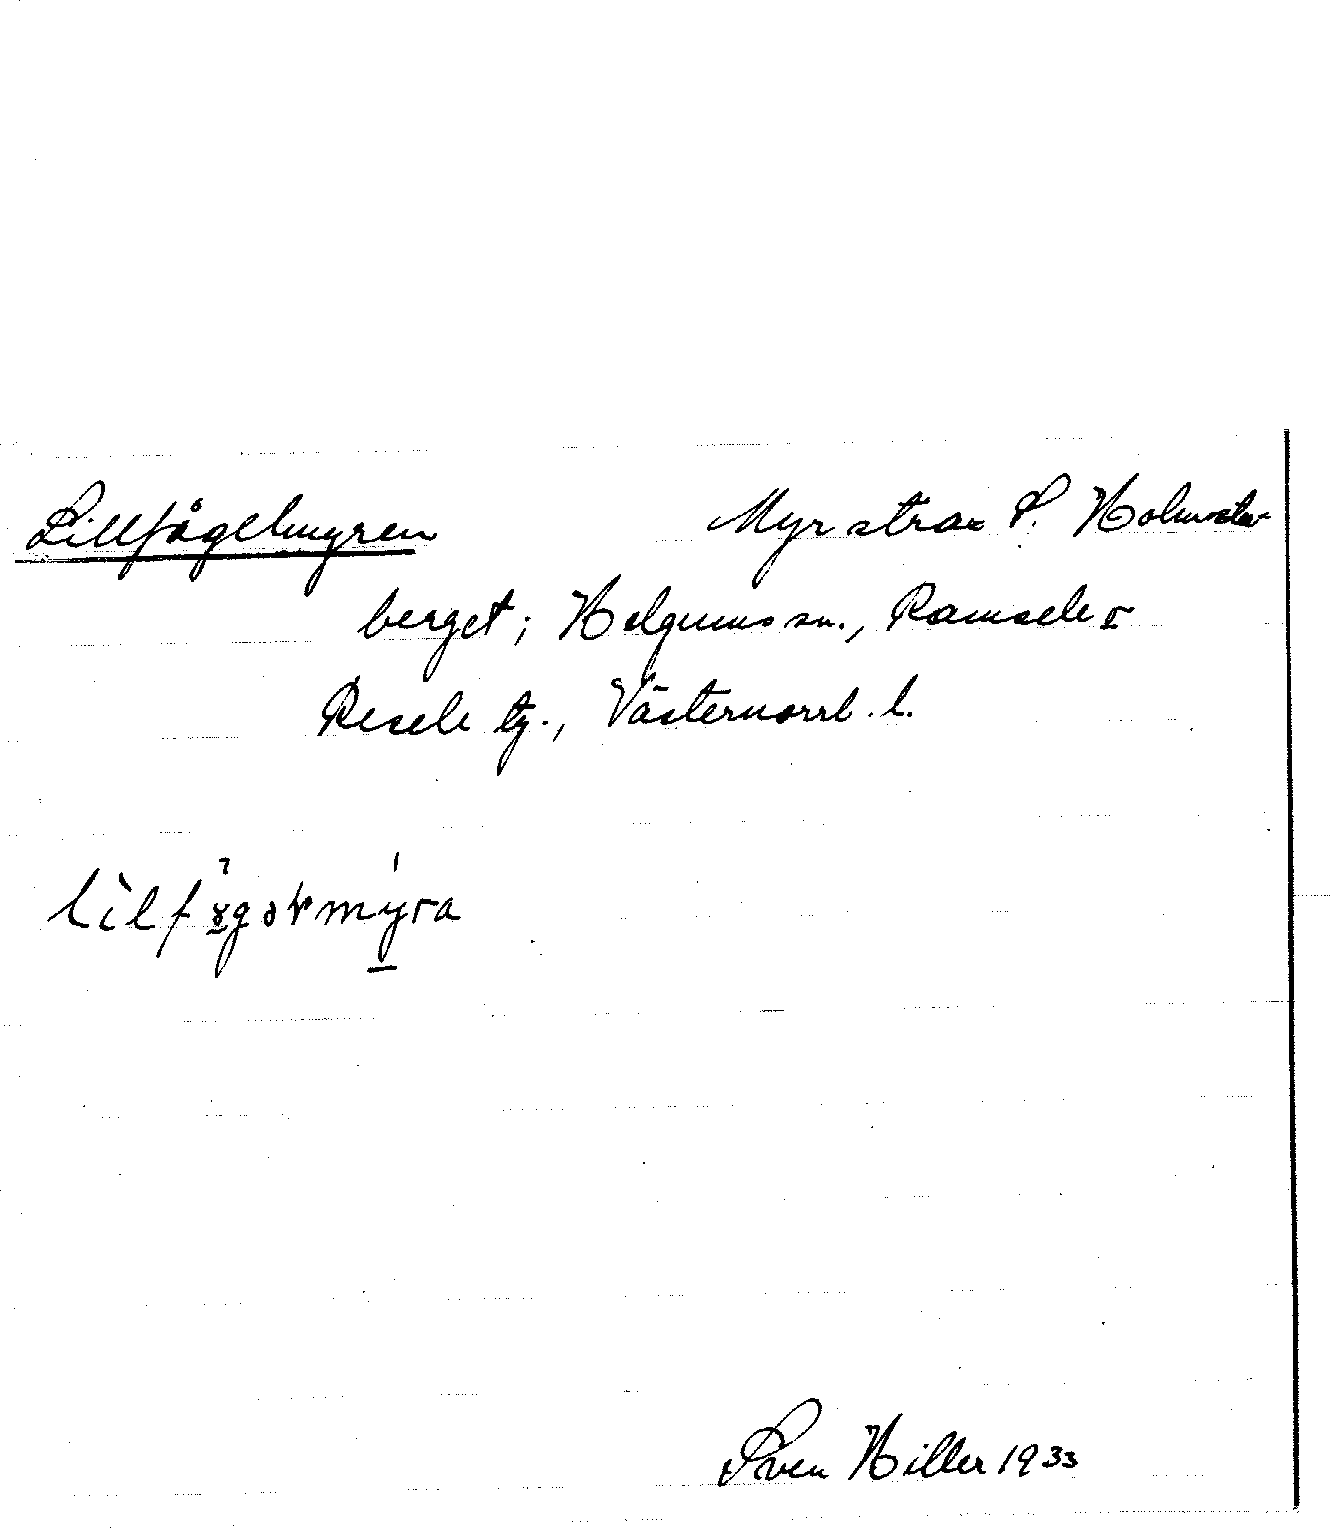 Lillfågelmyren Myr strax S. Holmsta-
berget; Helgums sn., Ramsele o.
Resele tg., Västernorrl. l.
Sven Hiller 1933